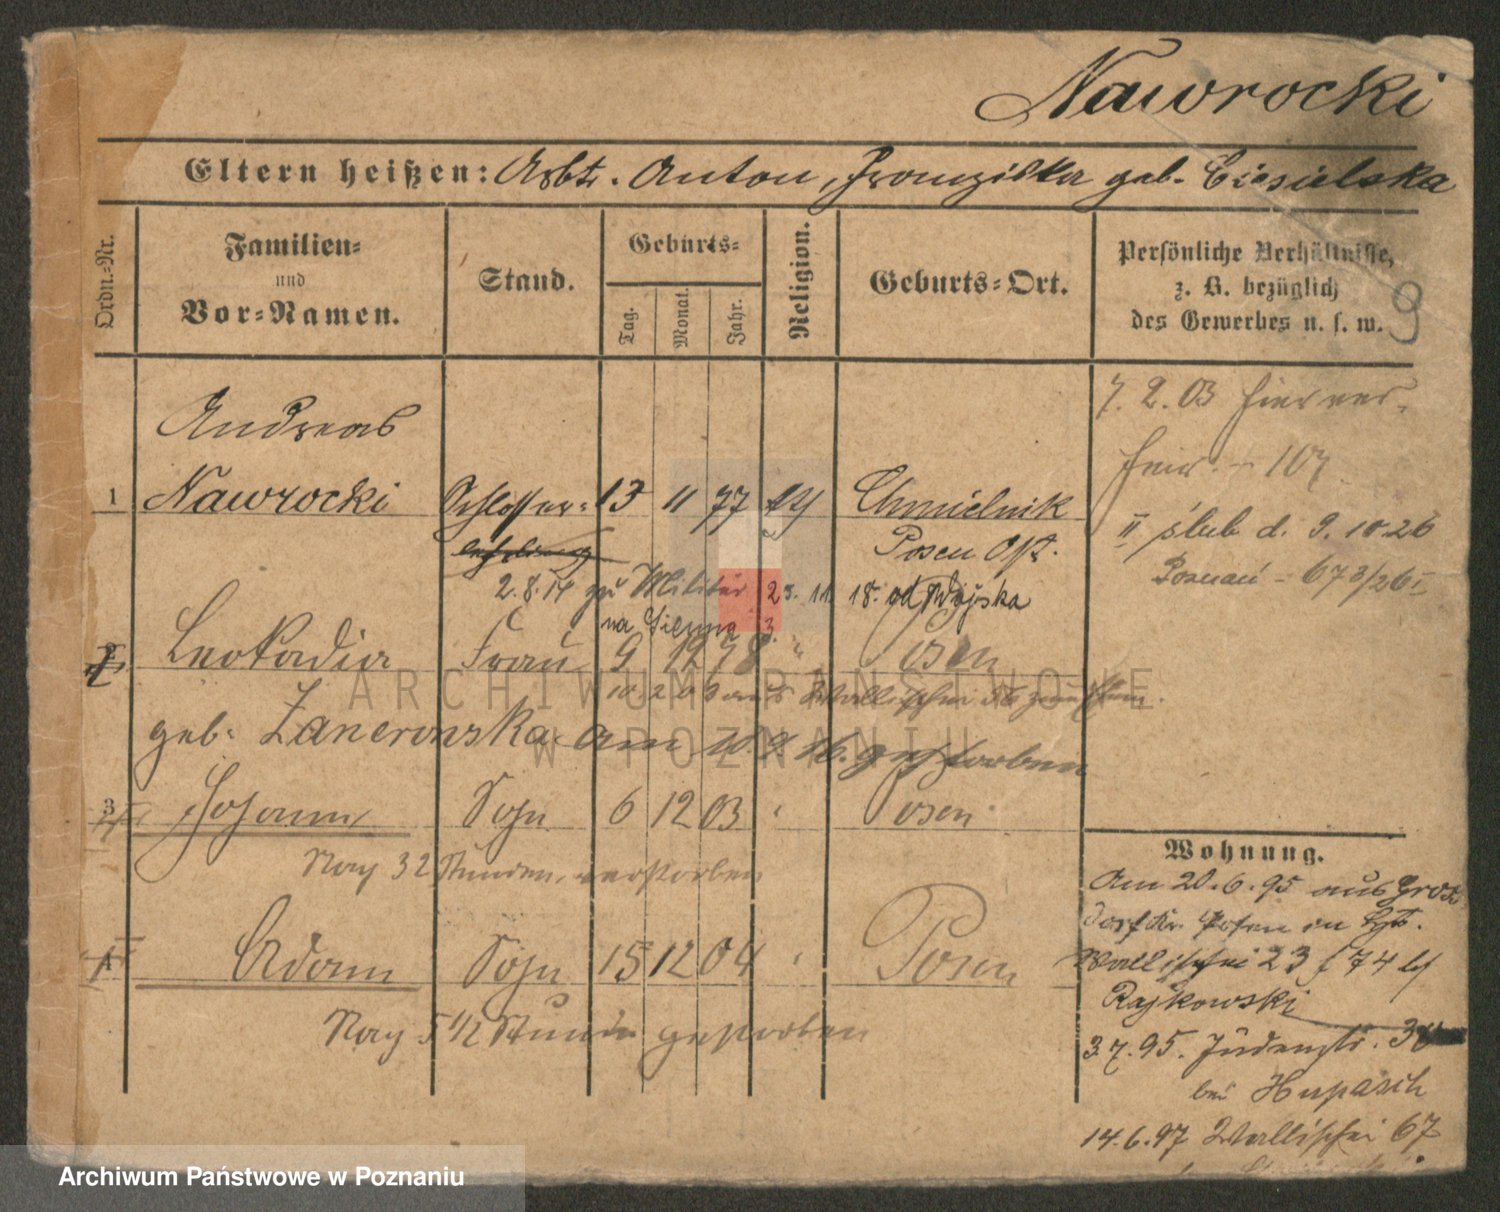 Nawrocki
Eltern heißen: Arbtr. Anton, Franziska geb. Ciesielska
Ordn.=Nr.
Familien=
und
Vor=Namen.
Stand.
Geburts=
Tag.
Monat.
Jahr.
Religion.
Geburts=Ort.
Persönliche Verhältnisse,
z. B. bezüglich
des Gewerbes u. s. w.
9
7. 2. 03 hier ver-
heir. - 107
II ślub d. 9. 10 26
Poznań - 673/26
Andreas
1 Nawrocki Schlosser= 13 11 77 Chmielnik
lehrling Posen Ost.
2. 8. 14 zu Militär 23. 11. 18. od Wojska
na
2 Leokadia Frau 9 12 78 " Posen
10. 2. 03 aus Wallischei
geb. am 10. gestorben
3 Johann Sohn 6 12 03 " Posen
Nach 32 Stunden verstorben
4 Adam Sohn 15 12 04 " Posen
Nach 5 1/2 Stunde gestorben
Wohnung.
Am 20. 6. 95 aus Gross
dorf Kr. in
Wallischei 23 / 74 bei
Rajkowski
3. 7. 95. Judenstr. 30
bei
14. 6. 97 Wallischei 67
ARCHIWUM PAŃSTWOWE
W POZNANIU
Archiwum Państwowe w Poznaniu